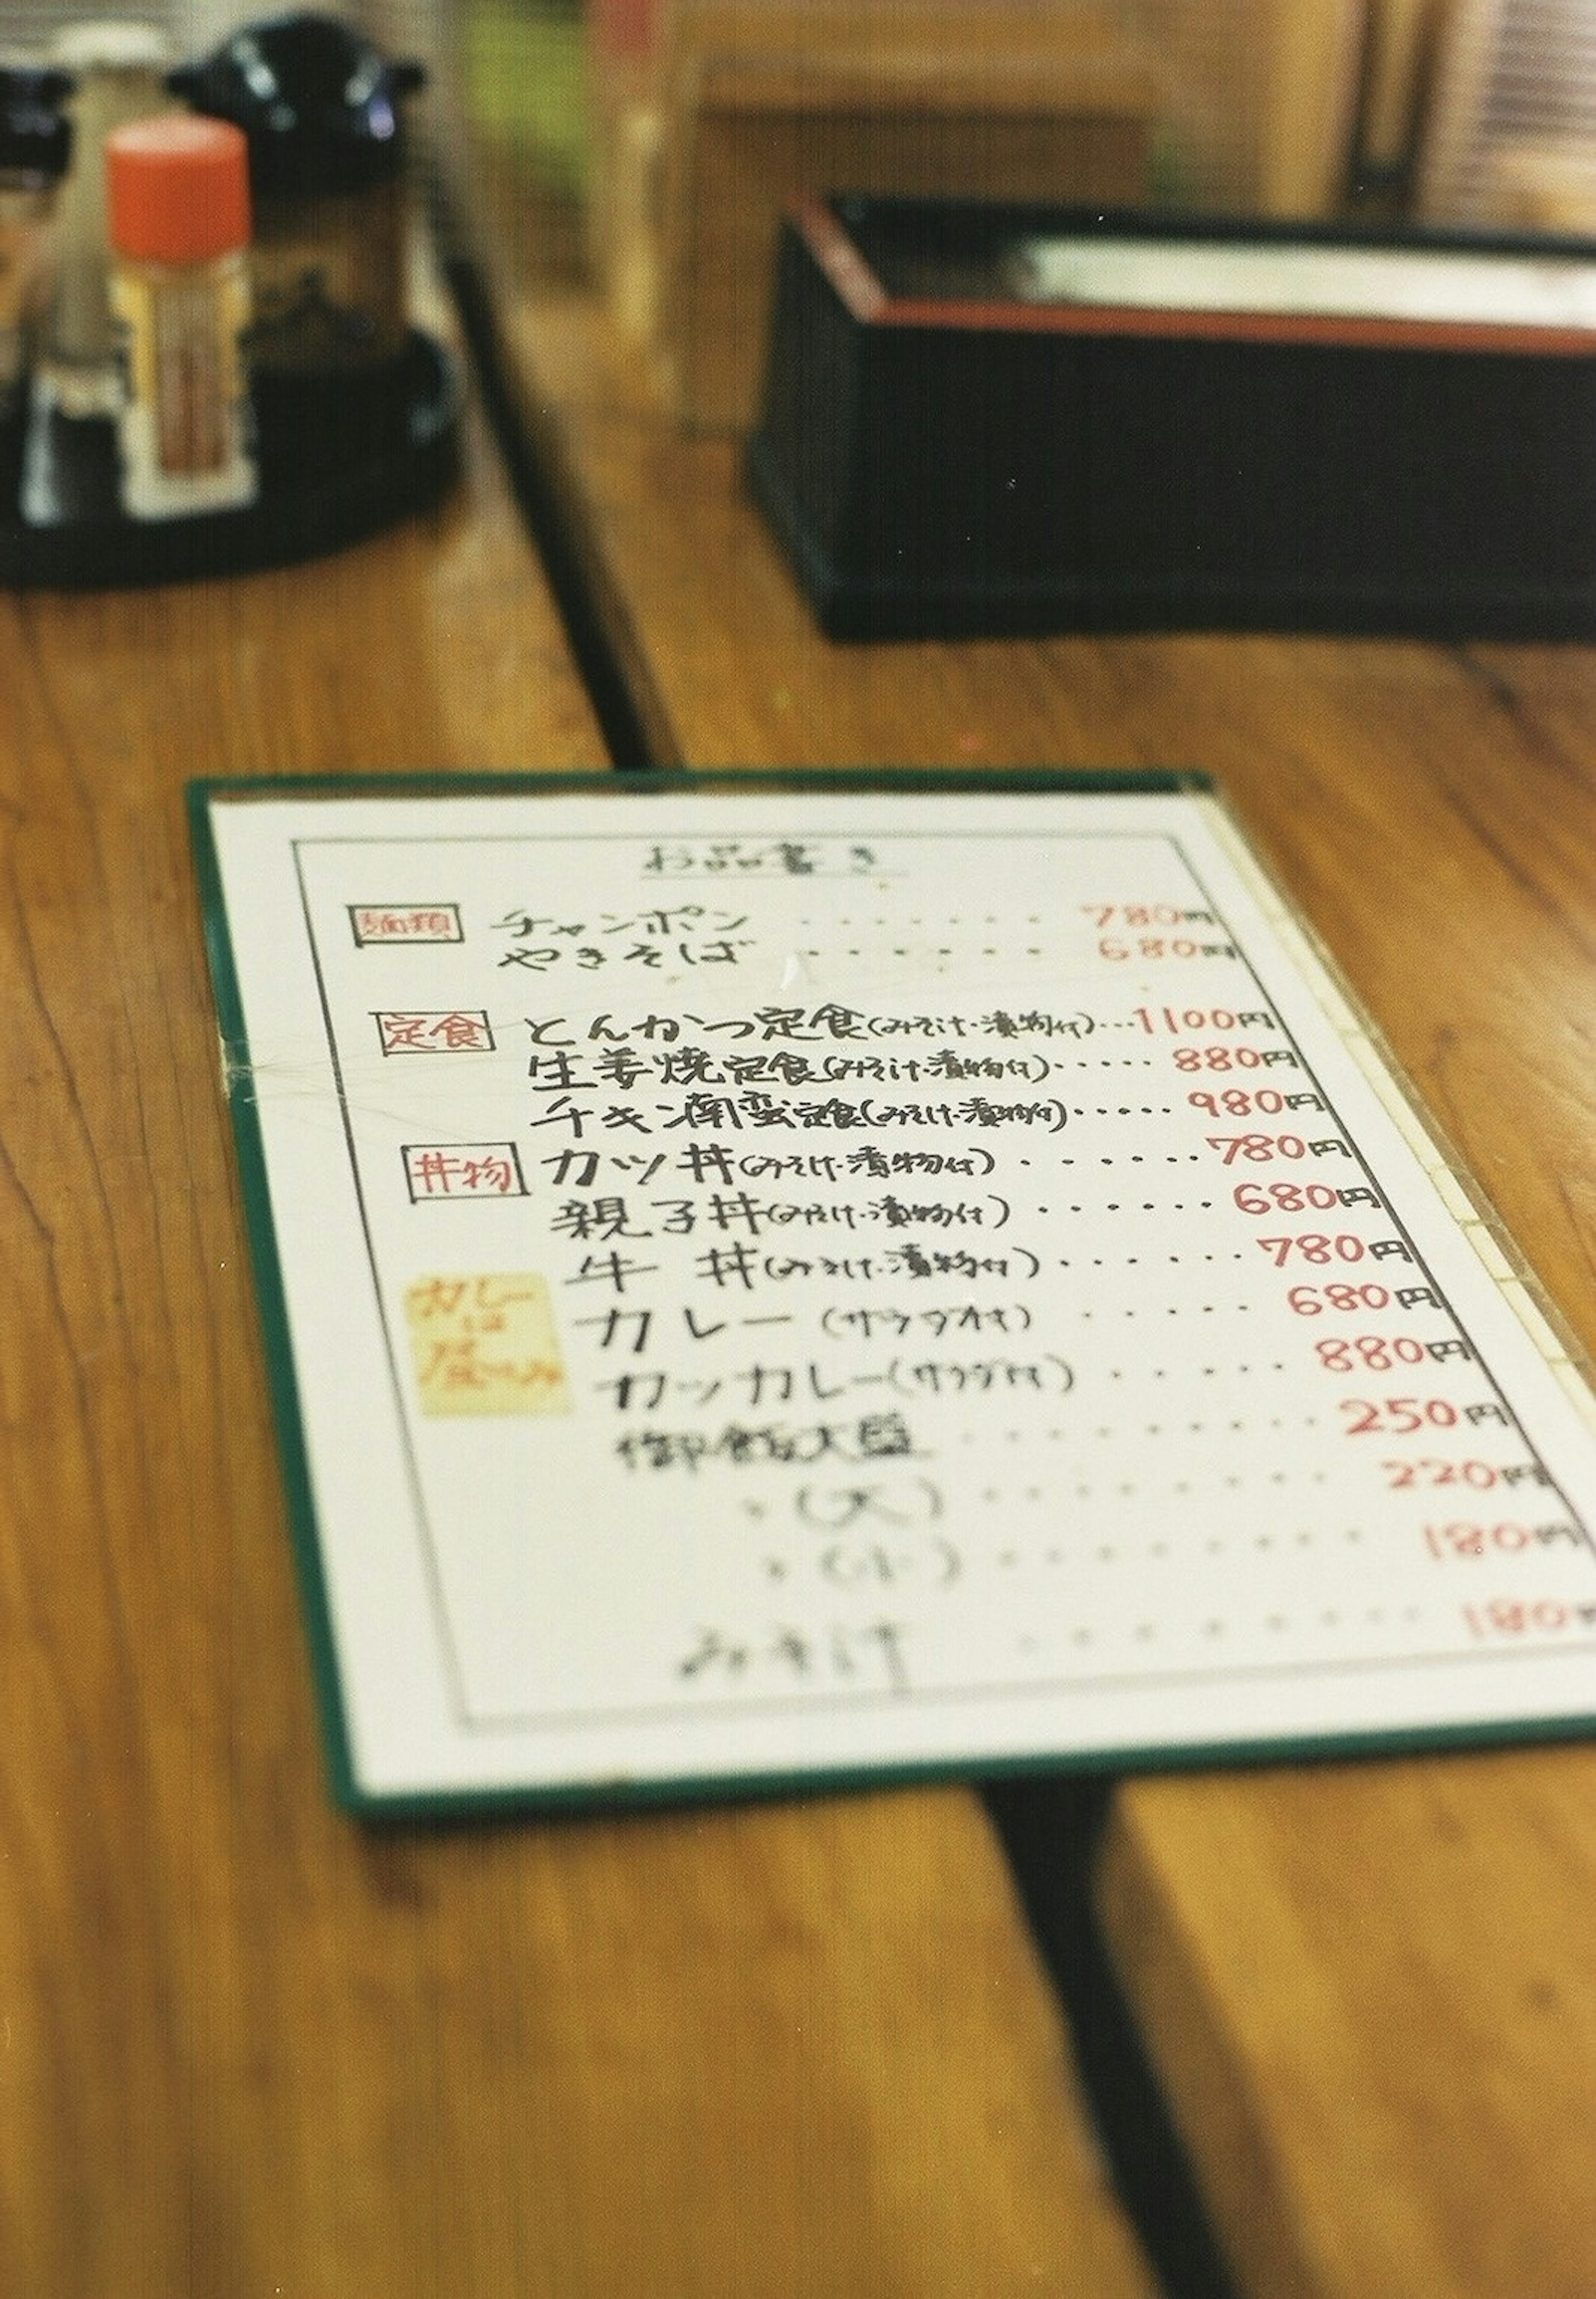 お品書き
麺類 チャンポン ・・・・・・・ 780円
やきそば ・・・・・・ 680円
定食 とんかつ定食(みそ汁・漬物付)・・・1100円
生姜焼定食(みそ汁・漬物付)・・・・・ 880円
チキン南蛮定食(みそ汁・漬物付)・・・・・ 980円
丼物 カツ丼(みそ汁・漬物付) ・・・・・・780円
親子丼(みそ汁・漬物付) ・・・・・・ 680円
牛 丼(みそ汁・漬物付)・・・・・・ 780円
カレー (サラダ付) ・・・・・ 680円
カツカレー(サラダ付) ・・・・・ 880円
カレー
は
昼のみ
御飯大盛 ・・・・・・・・・ 250円
〃 (大) ・・・・・・・・ 220円
〃 (小) ・・・・・・・・ 180円
みそ汁 ・・・・・・・・ 180円